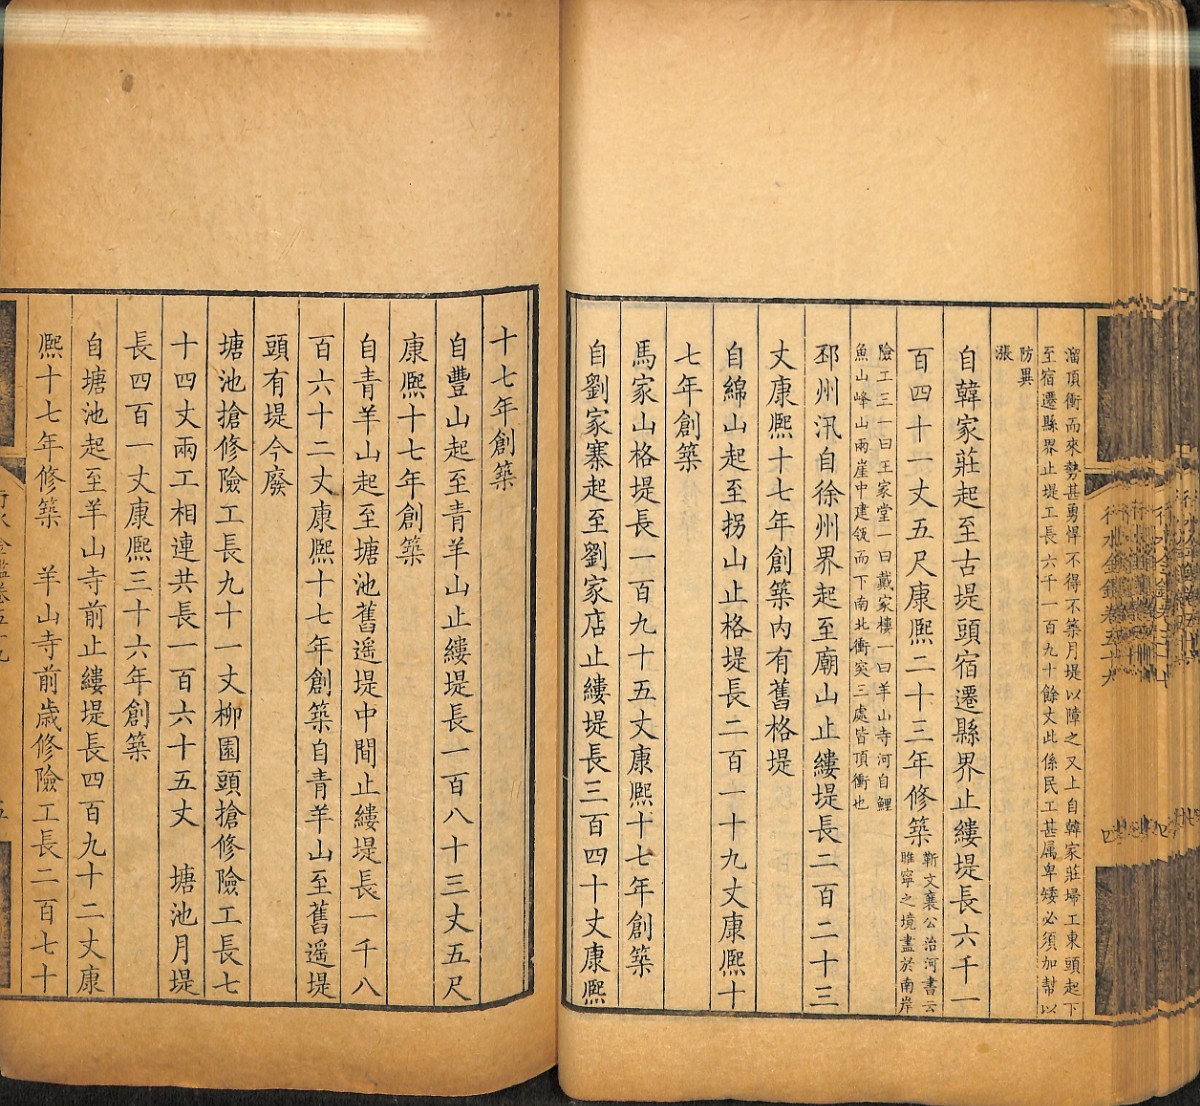 溜頂衝而來勢甚勇悍不得不築月堤以障之又上自韓家莊埽工東頭起下
至宿遷縣界止堤工長六千一百九十餘丈此係民工甚属卑矮必須加幫以
防異
漲
自韓家莊起至古堤頭宿遷縣界止縷堤長六千一
百四十一丈五尺康熙二十三年修築
靳文襄公治河書云
睢寧之境盡於南岸
險工三一曰王家堂一曰戴家樓一曰羊山寺河自鯉
魚山峰山兩崖中建瓴而下南北衝突三處皆頂衝也
邳州汛自徐州界起至廟山止縷堤長二百二十三
丈康熙十七年創築内有舊格堤
自綿山起至拐山止格堤長二百一十九丈康熙十
七年創築
馬家山格堤長一百九十五丈康熙十七年創築
自劉家寨起至劉家店止縷堤長三百四十丈康熙
十七年創築
自豐山起至青羊山止縷堤長一百八十三丈五尺
康熙十七年創築
自青羊山起至塘池舊遥堤中間止縷堤長一千八
百六十二丈康熙十七年創築自青羊山至舊遥堤
頭有堤今廢
塘池搶修險工長九十一丈柳園頭搶修險工長七
十四丈兩工相連共長一百六十五丈 塘池月堤
長四百一丈康熙三十六年創築
自塘池起至羊山寺前止縷堤長四百九十二丈康
熙十七年修築 羊山寺前歲修險工長二百七十
行水金鑑卷五十九
五